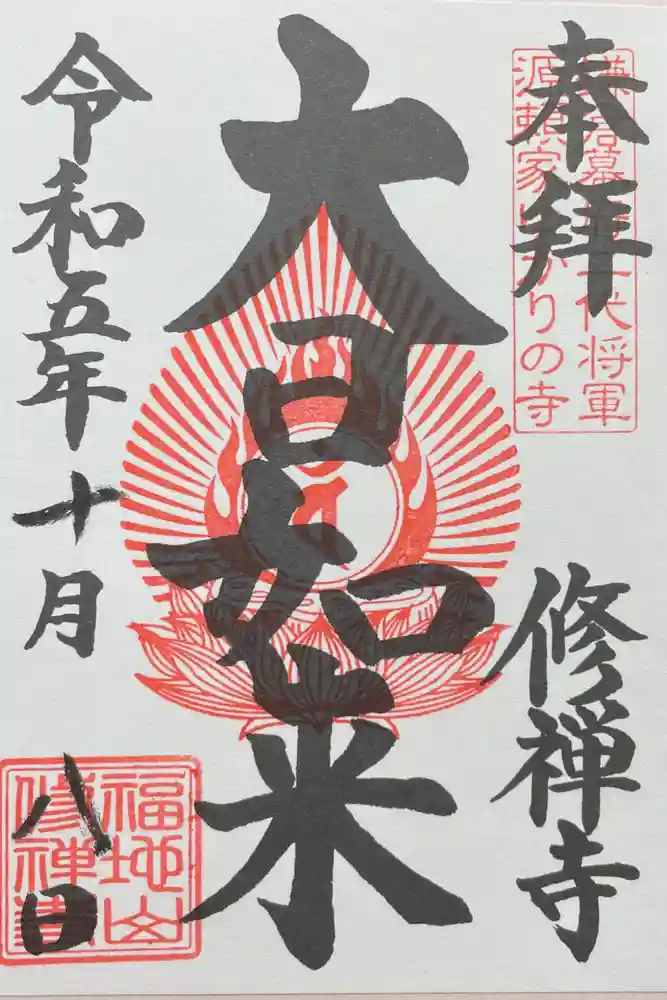 奉拝
鎌倉幕府二代将軍
源頼家ゆかりの寺
修禅寺
大日如来
令和五年十月八日
福地山
修禅寺